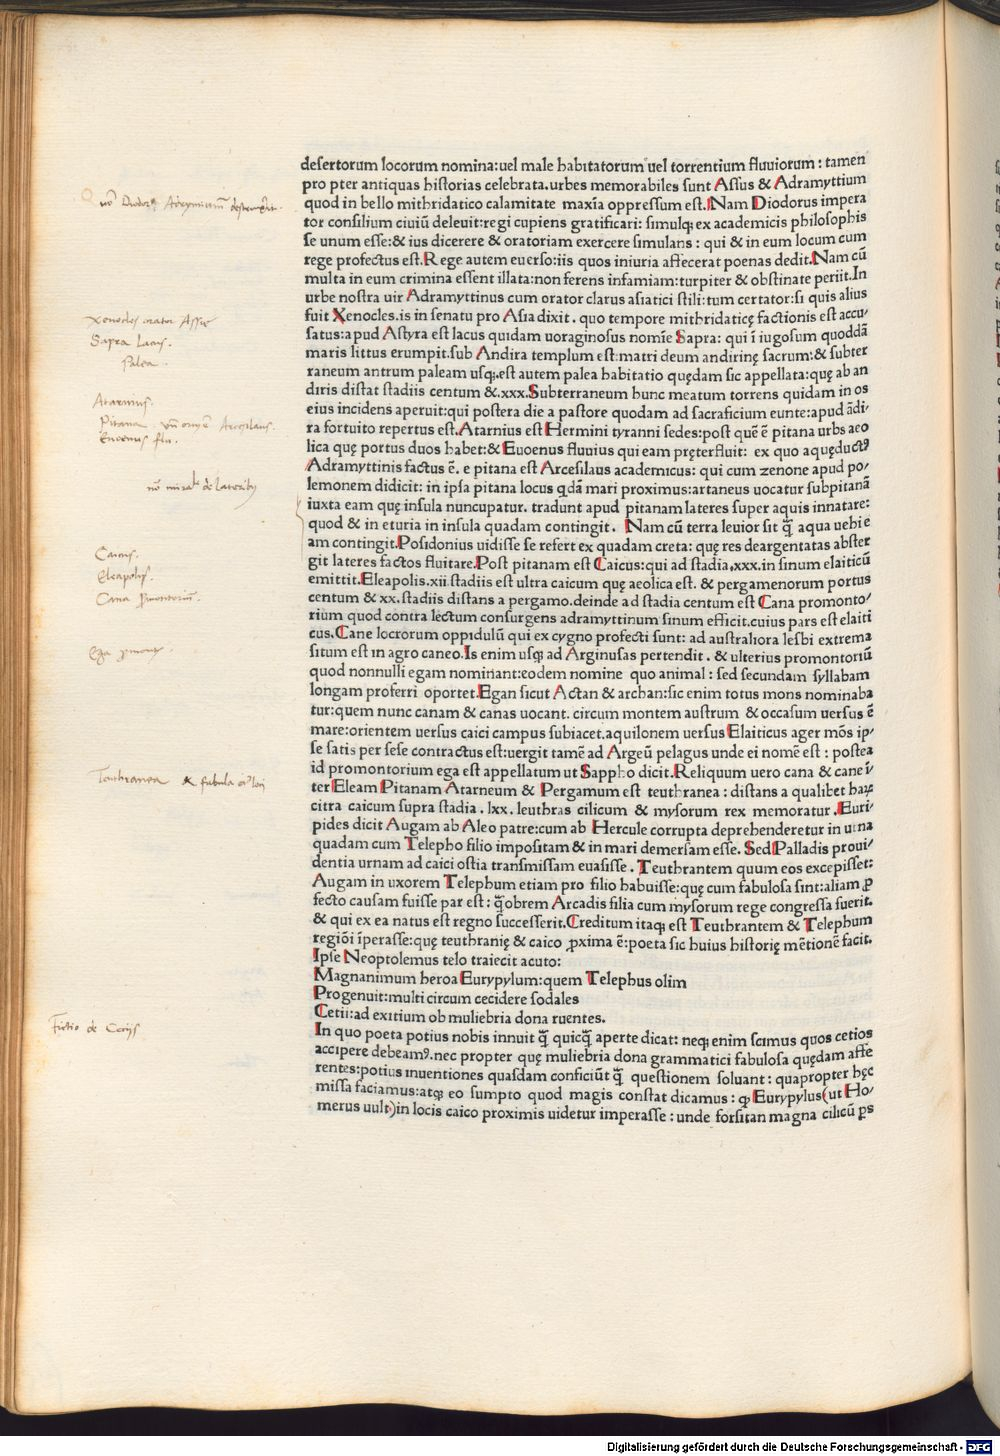 desertorum locorum nomina:uel male habitatorum uel torrentium fluuiorum : tamen
pro pter antiquas historias celebrata.urbes memorabiles sunt Assus & Adramyttium
quod in bello mithridatico calamitate maxĩa oppressum est.Nam Diodorus impera
tor consilium ciuiũ deleuit:regi cupiens gratificari: simulqȝ ex academicis philosophis
se unum esse:& ius dicerere & oratoriam exercere simulans : qui & in eum locum cum
rege profectus est.Rege autem euerso:iis quos iniuria affecerat poenas dedit.Nam cũ
multa in eum crimina essent illata:non ferens infamiam:turpiter & obstinate periit.In
urbe nostra uir Adramyttinus cum orator clarus asiatici stili:tum certator:si quis alius
fuit Xenocles.is in senatu pro Asia dixit . quo tempore mithridaticę factionis est accu/
satus:apud Astyra est lacus quidam uoraginosus nomĩe Sapra: qui ĩ iugosum quoddã
maris littus erumpit.sub Andira templum est:matri deum andirinę sacrum:& subter
raneum antrum paleam usqȝ.est autem palea habitatio quędam sic appellata:quę ab an
diris distat stadiis centum &.xxx.Subterraneum hunc meatum torrens quidam in os
eius incidens aperuit:qui postera die a pastore quodam ad sacraficium eunte:apud ãdi/
ra fortuito repertus est.Atarnius est Hermini tyranni sedes:post quẽ ẽ pitana urbs aeo
lica quę portus duos habet:& Euoenus fluuius qui eam pręterfluit: ex quo aquęductꝰ
Adramyttinis factus ẽ. e pitana est Arcesilaus academicus: qui cum zenone apud po/
lemonem didicit: in ipsa pitana locus qdã mari proximus:artaneus uocatur subpitanã
iuxta eam quę insula nuncupatur. tradunt apud pitanam lateres super aquis innatare:
quod & in eturia in insula quadam contingit. Nam cũ terra leuior sit q̃ aqua uehi e
am contingit.Posidonius uidisse se refert ex quadam creta: quę res deargentatas abster
git lateres factos fluitare.Post pitanam est Caicus:qui ad stadia.xxx.in sinum elaiticũ
emittit.Eleapolis.xii.stadiis est ultra caicum quę aeolica est. & pergamenorum portus
centum & xx.stadiis distans a pergamo.deinde ad stadia centum est Cana promonto/
rium quod contra lectum consurgens adramyttinum sinum efficit.cuius pars est elaiti
cus.Cane locrorum oppidulũ qui ex cygno profecti sunt: ad australiora lesbi extrema
situm est in agro caneo.Is enim usqȝ ad Arginusas pertendit . & ulterius promontoriũ
quod nonnulli egam nominant:eodem nomine quo animal : sed secundam syllabam
longam proferri oportet.Egan sicut Actan & archan:sic enim totus mons nominaba
tur:quem nunc canam & canas uocant. circum montem austrum & occasum uersus ẽ
mare:orientem uersus caici campus subiacet.aquilonem uersus Elaiticus ager mõs ip/
se satis per sese contractus est:uergit tamẽ ad Argeũ pelagus unde ei nomẽ est : postea
id promontorium ega est appellatum ut Sappho dicit.Reliquum uero cana & cane ĩ/
ter Eleam Pitanam Atarneum & Pergamum est teuthranea : distans a qualibet haꝝ
citra caicum supra stadia . lxx. leuthras cilicum & mysorum rex memoratur .Euri/
pides dicit Augam ab Aleo patre:cum ab Hercule corrupta deprehenderetur in urna
quadam cum Telepho filio impositam & in mari demersam esse. Sed Palladis proui/
dentia urnam ad caici ostia transmissam euasisse . Teuthrantem quum eos excepisset:
Augam in uxorem Telephum etiam pro filio habuisse:quę cum fabulosa sint:aliam ꝓ
fecto causam fuisse par est : q̃obrem Arcadis filia cum mysorum rege congressa fuerit.
& qui ex ea natus est regno successerit.Creditum itaqȝ est Teuthrantem & Telephum
regiõi ĩperasse:quę teuthranię & caico ꝓxima ẽ:poeta sic huius historię mẽtionẽ facit.
Ipse Neoptolemus telo traiecit acuto:
Magnanimum heroa Eurypylum:quem Telephus olim
Progenuit:multi circum cecidere sodales
Cetii:ad exitium ob muliebria dona ruentes.
In quo poeta potius nobis innuit q̃ quicq̃ aperte dicat: neqȝ enim scimus quos cetios
accipere debeamꝰ.nec propter quę muliebria dona grammatici fabulosa quędam affe
rentes:potius inuentiones quasdam conficiũt q̃ questionem soluant : quapropter hęc
missa faciamus:atqȝ eo sumpto quod magis constat dicamus : ꝙ Eurypylus(ut Ho/
merus uult)in locis caico proximis uidetur imperasse : unde forsitan magna cilicũ ps
Xenocles orator Assię
Sapra Lacus.
Palea.
Atarnius.
Pitana
Euoenus flu.
Caicus.
Eleapolis.
Teuthranea & fabula
Fictio de Cetijs
Digitalisierung gefördert durch die Deutsche Forschungsgemeinschaft - DFG